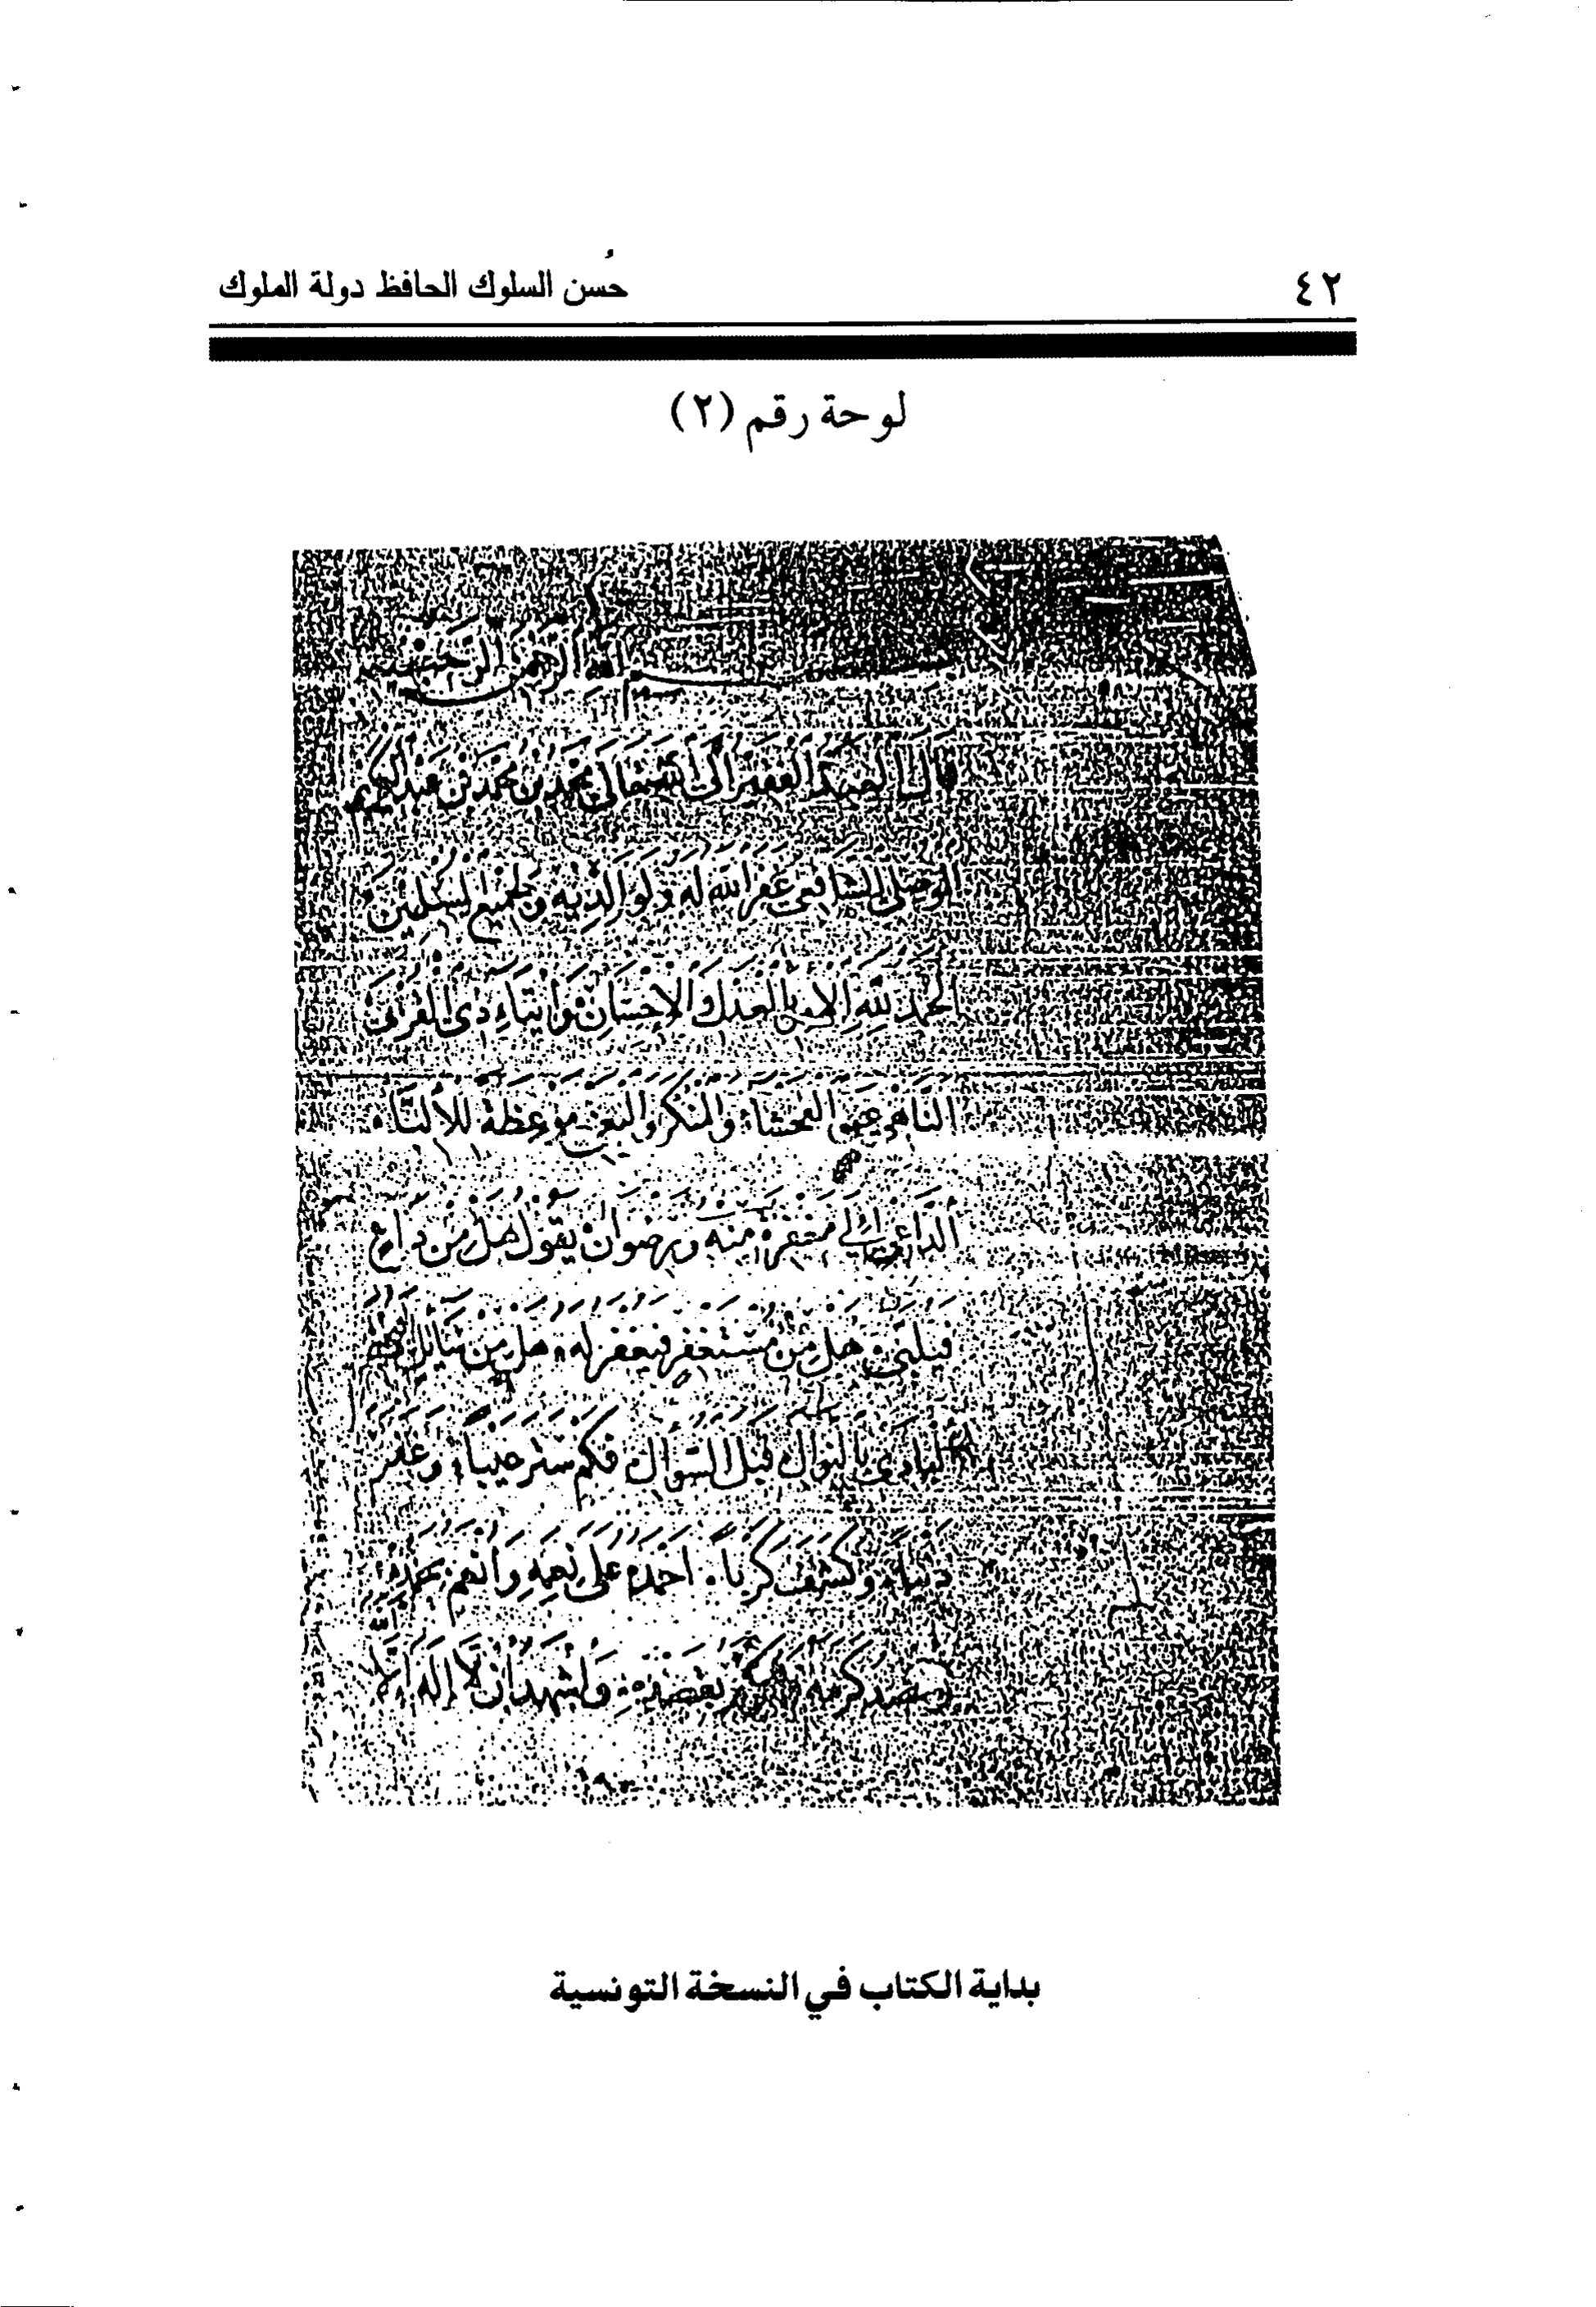 ٤٢
حُسن السلوك الحافظ دولة الملوك
لوحة رقم (٢)
بسم الله الرحمن الرحيم
قال العبد الفقير إلى الله تعالى محمد بن محمد بن عبد الكريم
الموصلي الشافعي غفر الله له ولوالديه ولجميع المسلمين
الحمد لله الآمر بالعدل والإحسان وإيتاء ذي القربى
الناهي عن الفحشاء والمنكر والبغي موعظة للألباء
الداعي إلى مغفرة منه ورضوان يقول هل من داع
فيلبى هل من مستغفر فيغفر له هل من سائل
البادئ بالنوال قبل السؤال فكم ستر عيبا وغفر
ذنبا وكشف كربا أحمده على نعمه
وأشهد أن لا إله إلا الله
بداية الكتاب في النسخة التونسية